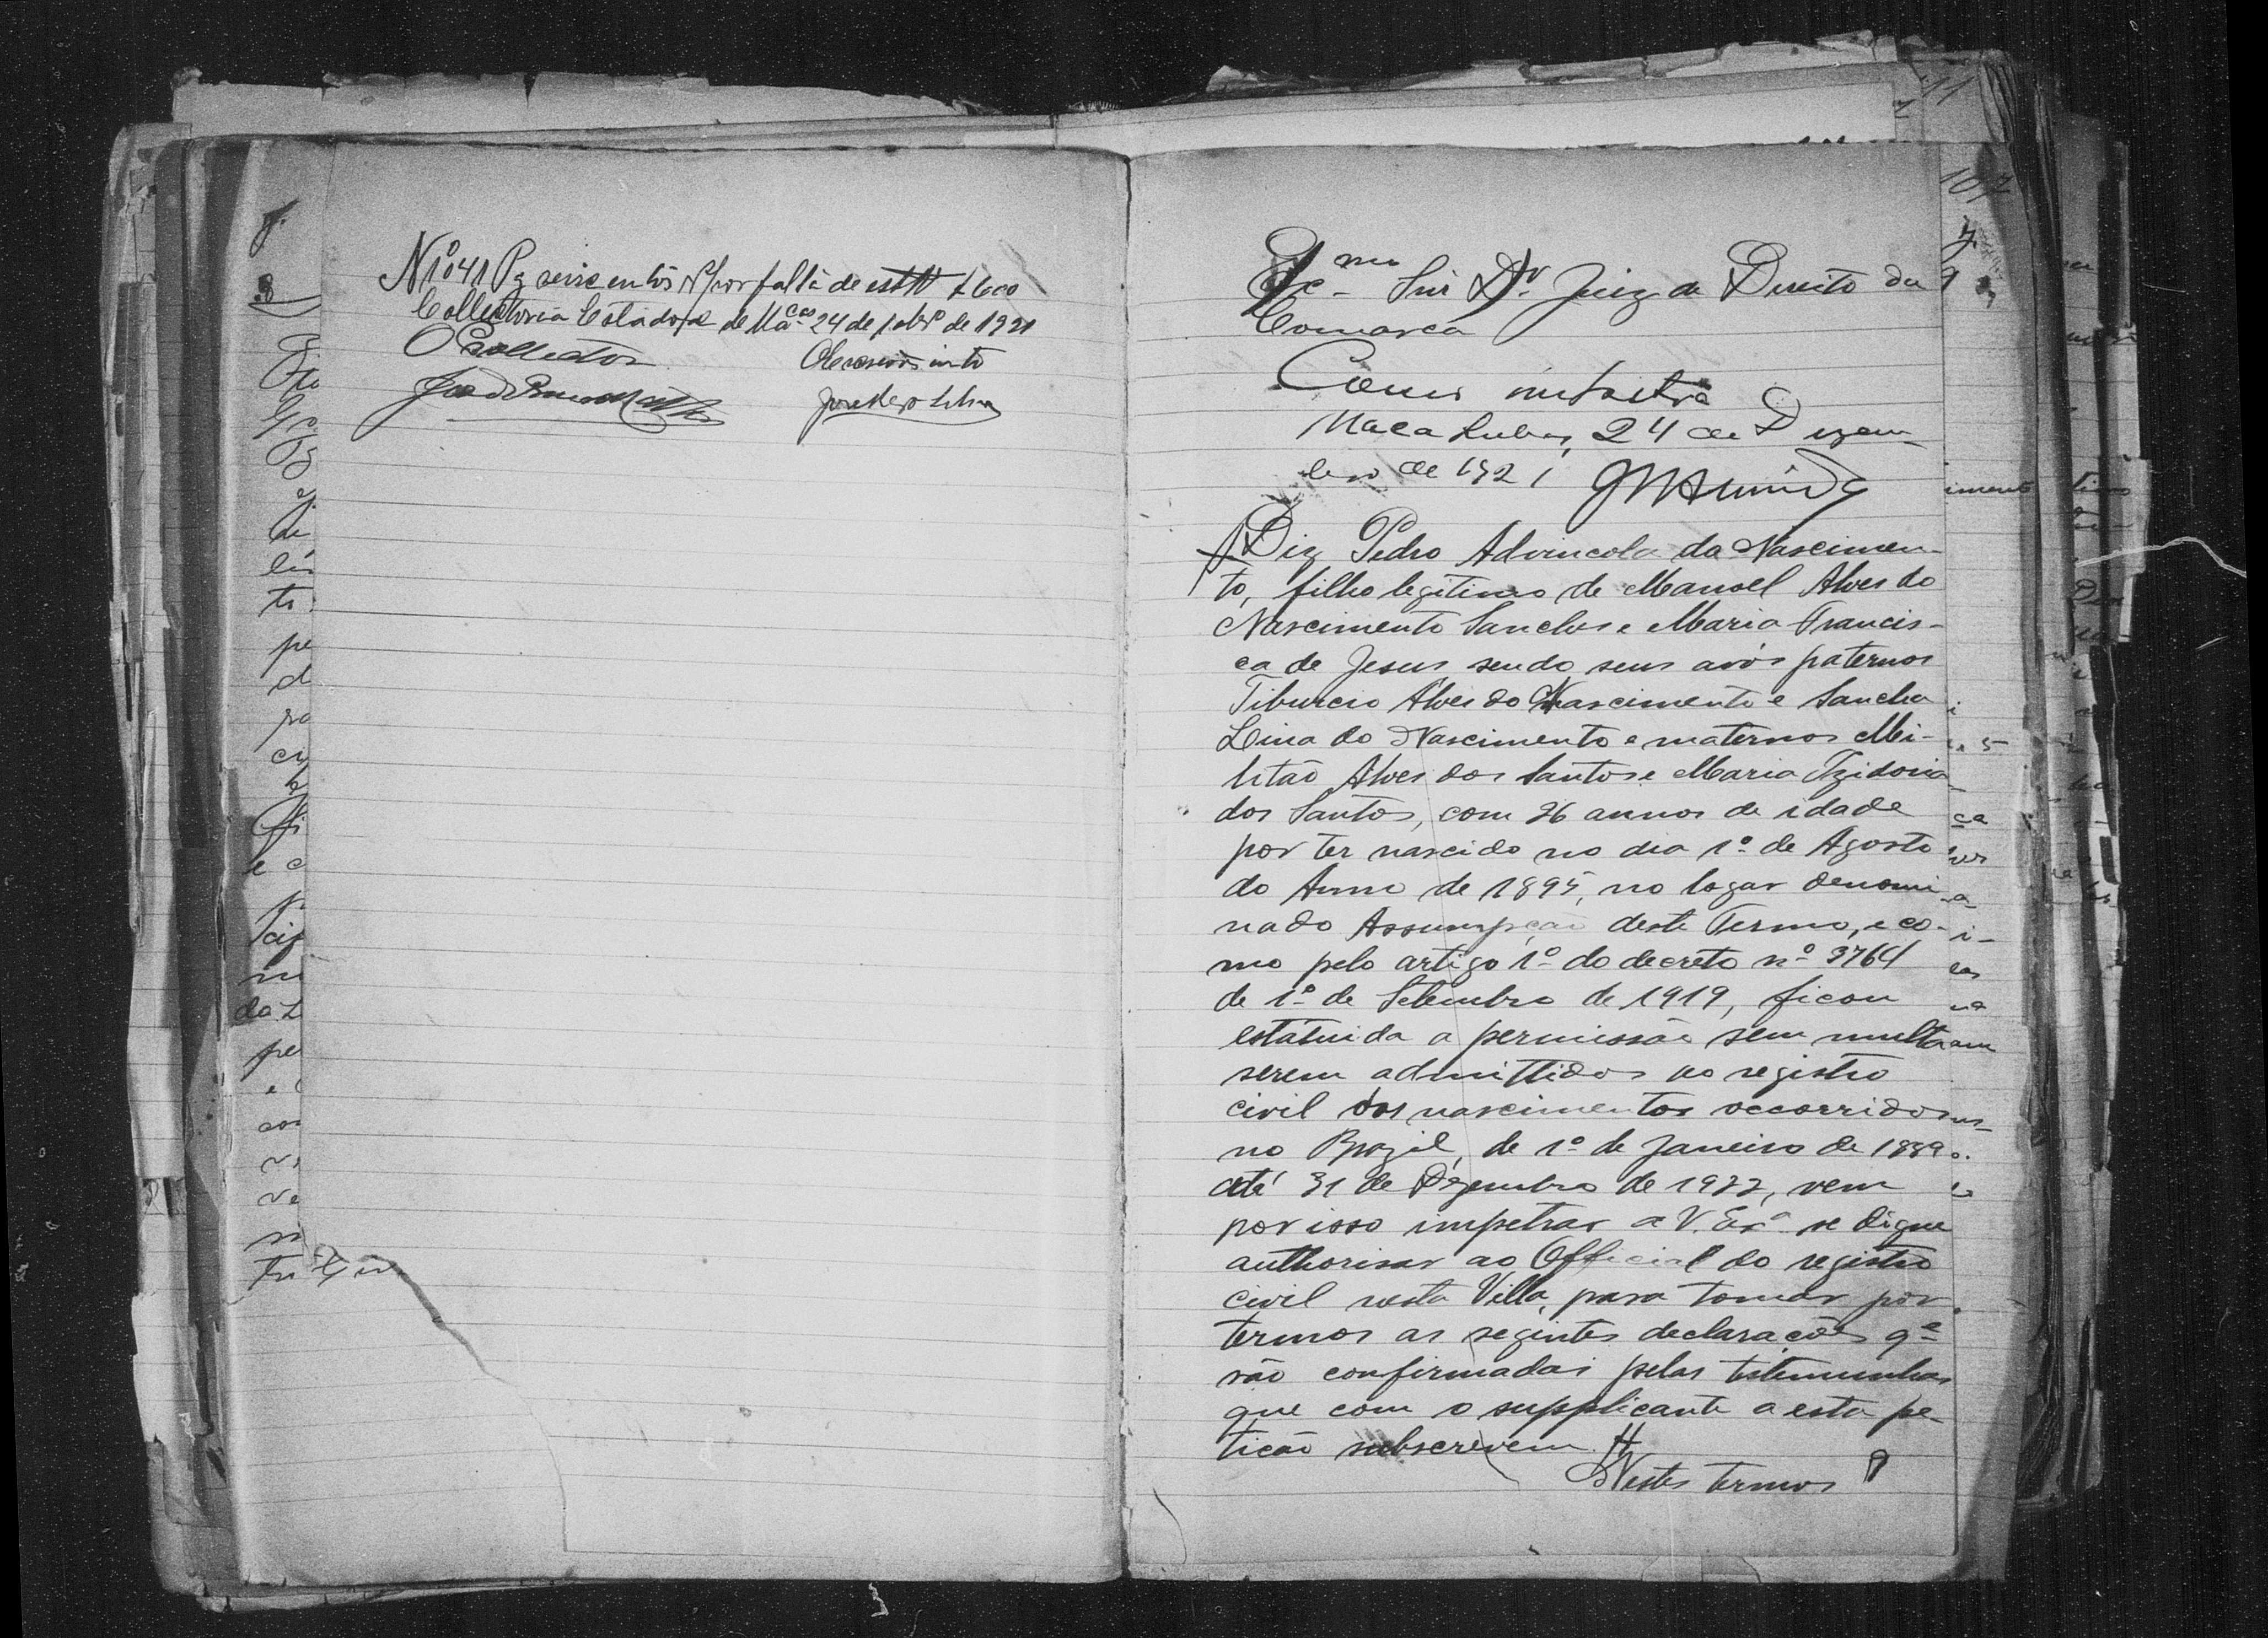 Nº 1041 Pg seiscentos rs por falta de estª $600
Collectoria Estadoal de Mac.cas 24 de 10bro de 1921
O Collector
O Escrivão int.º
Exc.mo Snr Dr. Juiz de Direito da
Comarca
Como
Macahubas, 24 de Dezem-
bro de 1921
Diz Pedro Advincola do Nascimen-
to, filho legitimo de Manoel Alves do
Nascimento Sanches e Maria Francis-
ca de Jesus sendo seus avós paternos
Tiburcio Alves do Nascimento e Sancha
Lina do Nascimento e maternos Mi-
litão Alves dos Santos e Maria Izidoria
dos Santos, com 26 annos de idade
por ter nascido no dia 1º de Agosto
do Anno de 1895, no logar denomi-
nado Assumpção deste Termo, e co-
mo pelo artigo 1º do decreto nº 3764
de 1º de Setembro de 1919, ficou
estatuida a permissão sem multa
serem admittidos ao registro
civil dos nascimentos occorridos
no Brazil, de 1º de Janeiro de 1889
até 31 de Dezembro de 1922, vem
por isso impetrar a V. Exª se digne
authorisar ao Official do registro
civil nesta Villa, para tomar por
termos as segintes declarações qe
são confirmadas pelas testemunhas
que com o supplicante a esta pe-
tição subscrevem.
Nestes termos